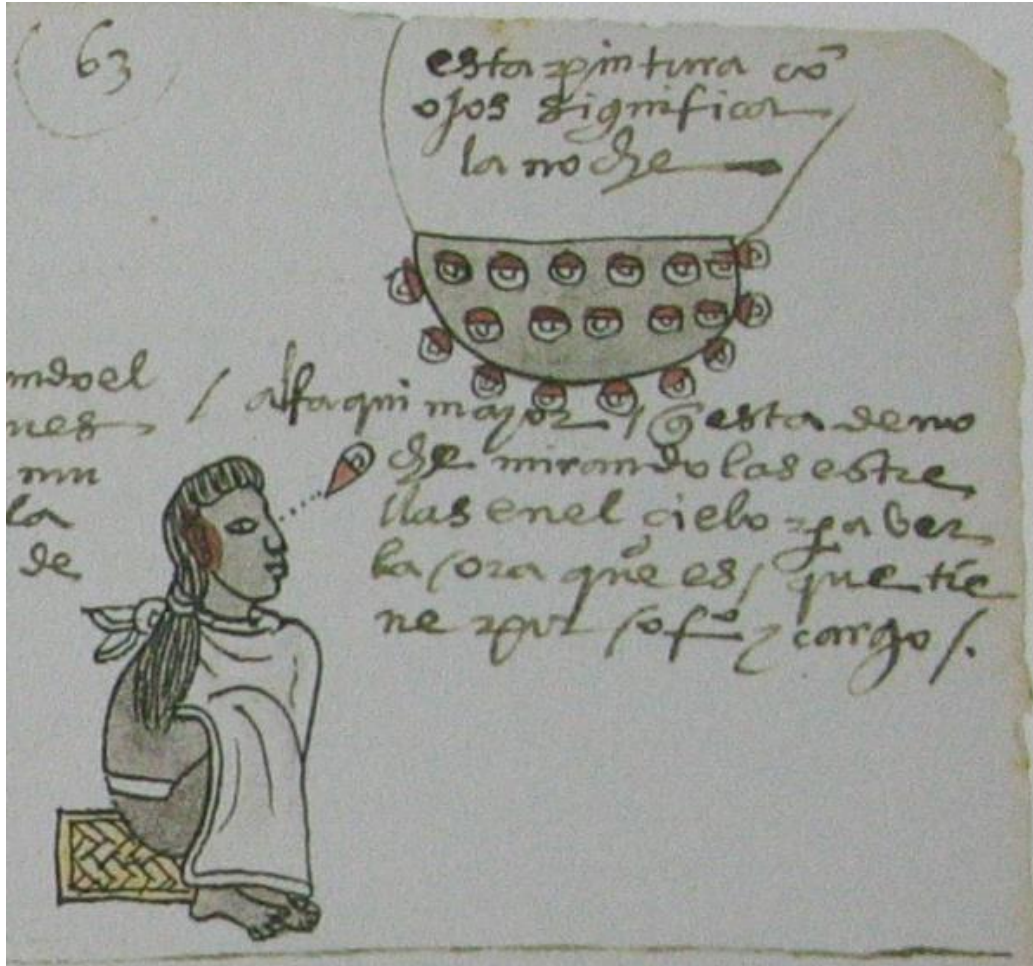 63
esta pintura cō
ojos significa
la noche
ndo el
nes
mu
la
de
/ alfaqui mayor / q̄ esta de no
che mirando las estre
llas en el cielo pa ber
la ora que es / que tie
ne por ofº y cargo /.